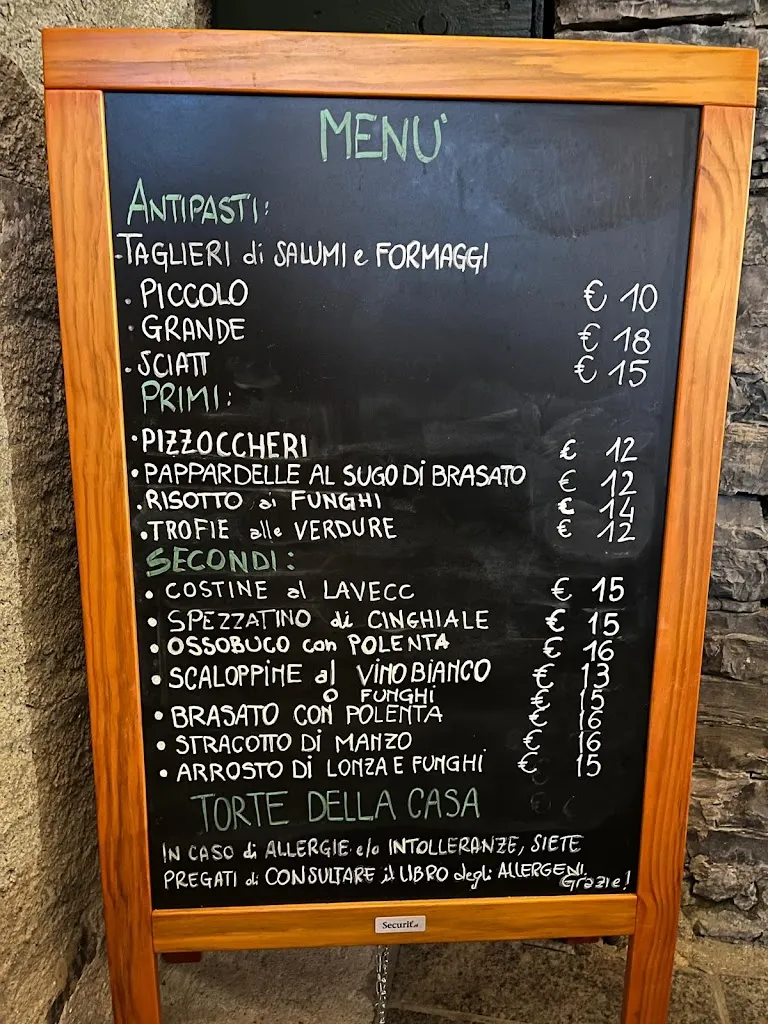 MENU'
ANTIPASTI:
-TAGLIERI di SALUMI e FORMAGGI
. PICCOLO € 10
. GRANDE € 18
. SCIATT € 15
PRIMI:
• PIZZOCCHERI € 12
• PAPPARDELLE AL SUGO DI BRASATO € 12
. RISOTTO ai FUNGHI € 14
• TROFIE alle VERDURE € 12
SECONDI:
• COSTINE al LAVECC € 15
• SPEZZATINO di CINGHIALE € 15
• OSSOBUCO con POLENTA € 16
• SCALOPPINE al VINO BIANCO € 13
O FUNGHI € 15
• BRASATO CON POLENTA € 16
• STRACOTTO DI MANZO € 16
• ARROSTO DI LONZA E FUNGHI € 15
TORTE DELLA CASA
IN CASO di ALLERGIE e/o INTOLLERANZE, SIETE
PREGATI di CONSULTARE il LIBRO degli ALLERGENI.
Grazie!
Securit